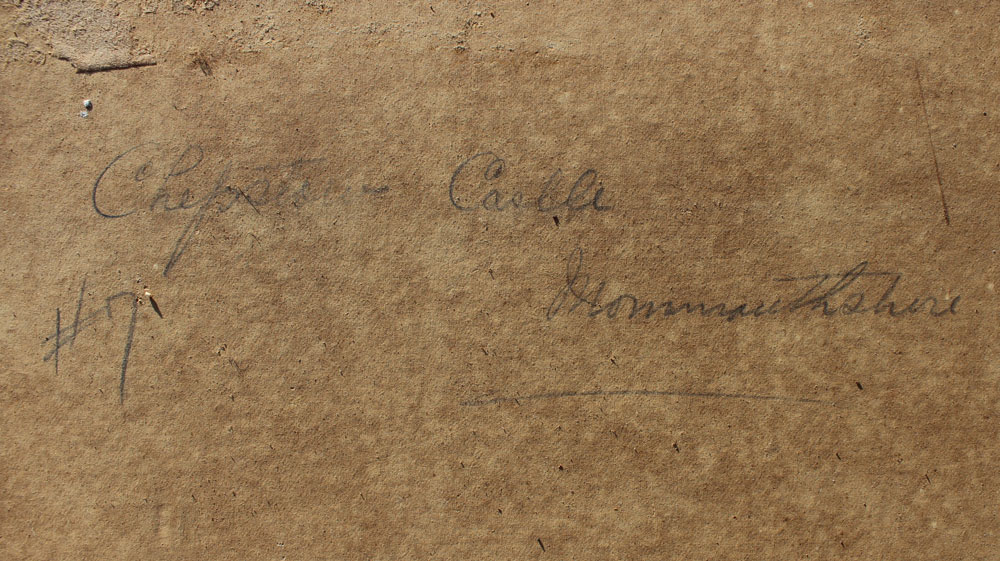 Chepstow Castle
Monmouthshire
#7